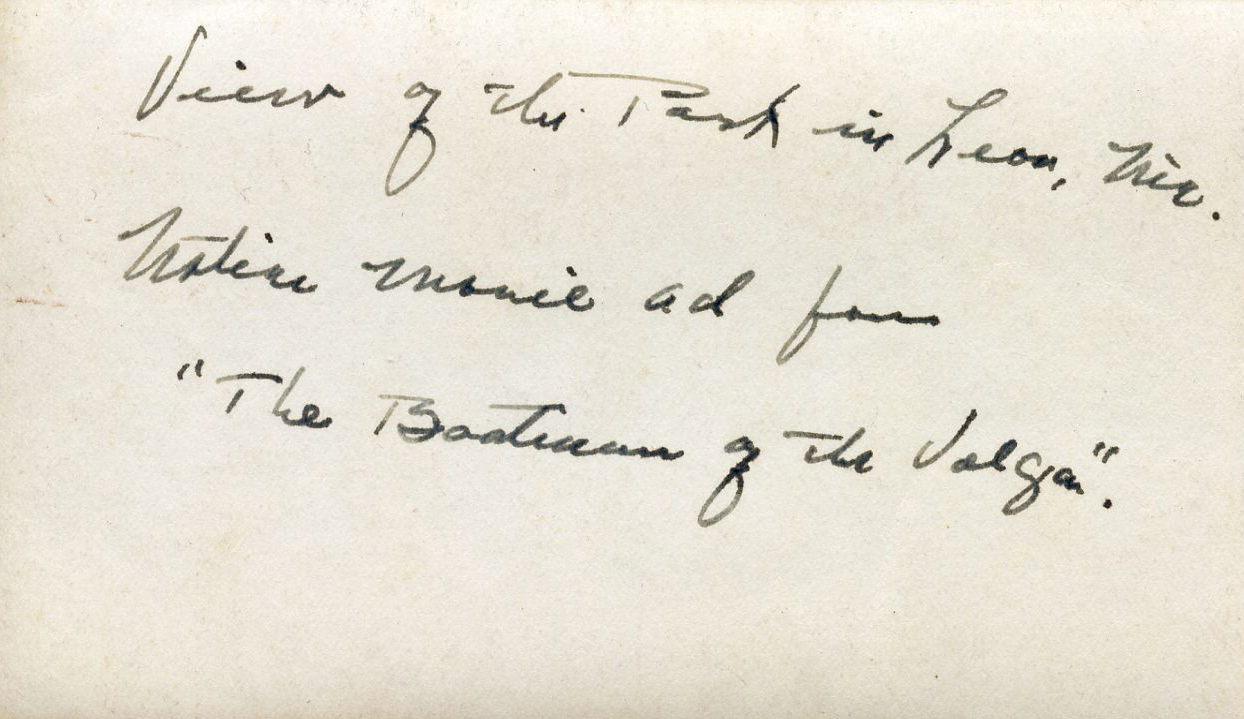 View of the Park in Leon, Nic.
Notice movie ad for
"The Boatman of the Volga".